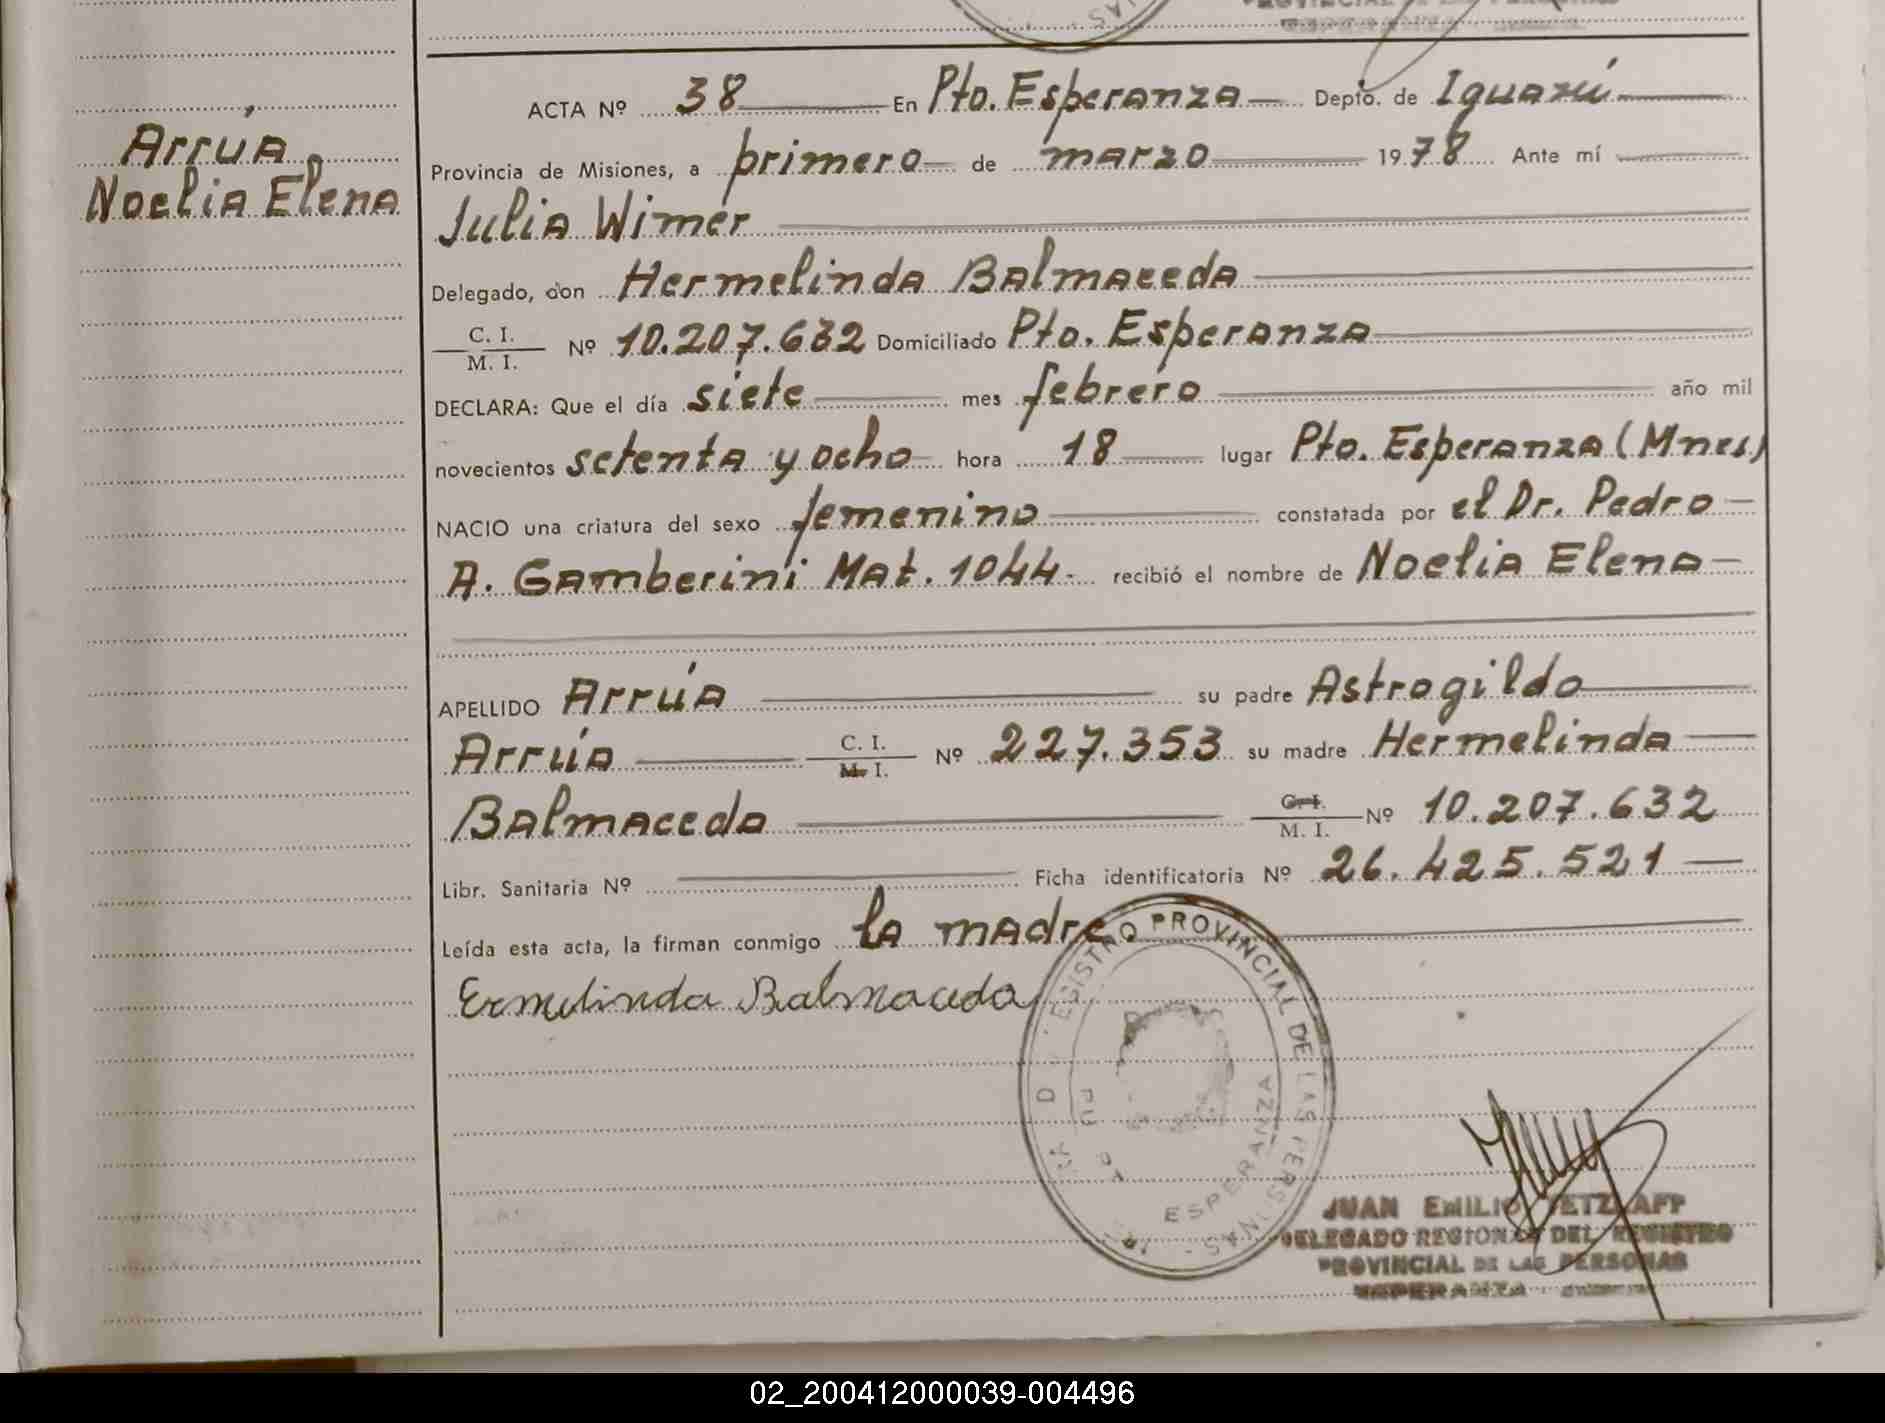 Arrúa
Noelia Elena
ACTA Nº 38 En Pto. Esperanza Depto. de Iguazú
Provincia de Misiones, a primero de marzo 1978 Ante mí
Julia Wimer
Delegado, don Hermelinda Balmaceda
C. I.
M. I. Nº 10.207.632 Domiciliado Pto. Esperanza
DECLARA: Que el día siete mes febrero año mil
novecientos setenta y ocho hora 18 lugar Pto. Esperanza (Mnes)
NACIO una criatura del sexo femenino constatada por el Dr. Pedro
A. Gamberini Mat. 1044. recibió el nombre de Noelia Elena
APELLIDO Arrúa su padre Astrogildo
Arrúa C. I. M. I. Nº 227.353 su madre Hermelinda
Balmaceda C. I. M. I. Nº 10.207.632
Libr. Sanitaria Nº Ficha identificatoria Nº 26.425.521
Leída esta acta, la firman conmigo la madre
Ermelinda Balmaceda
REGISTRO PROVINCIAL DE LAS PERSONAS
ESPERANZA
JUAN EMILIO
DELEGADO REGIONAL DEL REGISTRO
PROVINCIAL DE LAS PERSONAS
ESPERANZA
02_200412000039-004496